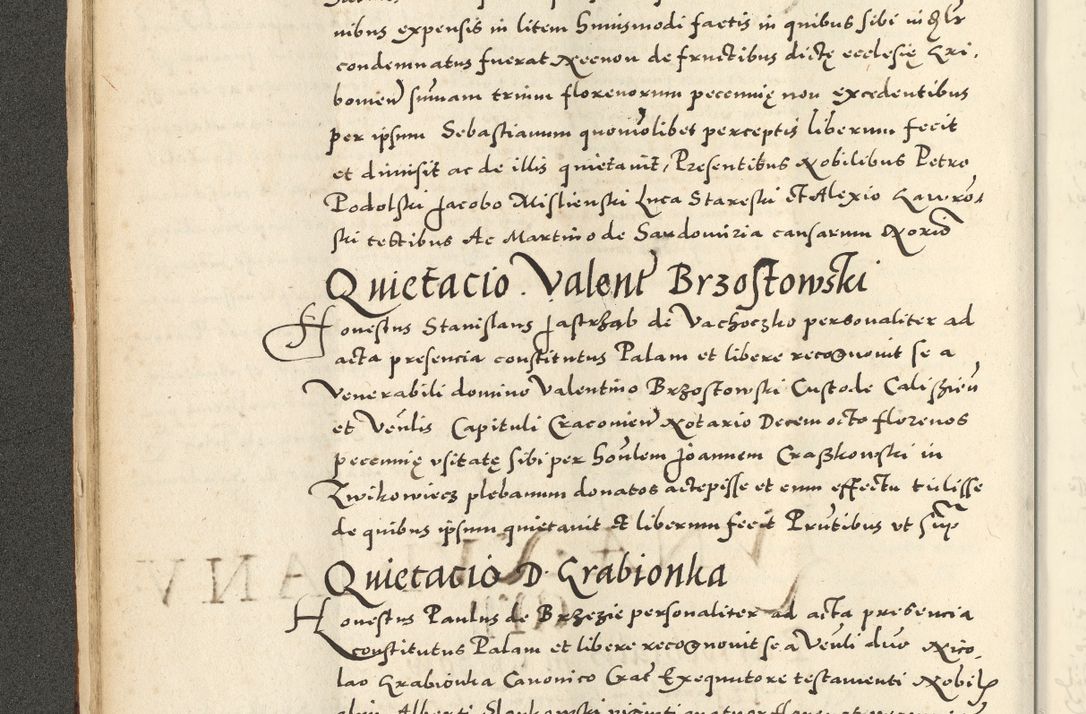 nibus expensis in litem huiusmodi factis in quibus sibi
condemnatus fuerat Necnon de fructibus dictę ecclesię Gri,
bomien̄ sum̄am trium florenorum pecunnię non excedentibus
per ipsum Sebastianum quomōlibet perceptis liberum fecit
et dimisit ac de illis quietauit, Presentibus Nobilibus Petro
Podolski Jacobo Mislienski Luca Stareski et Alexio Gawro,
ski testibus Ac Martino de Sandomiria causarum Norio
Quietacio Valent Brzostowski
Honestus Stanislaus Jastrząb de Vachoczko personaliter ad
acta presencia constitutus Palam et libere recognouit se a
Venerabili domino Valentino Brzostowski Custode Caliszien̄
et Ven̄lis Capituli Cracouien̄ Notario Decem octo florenos
pecunnię vsitatę sibi per Hon̄lem Joannem Craszkowski in
Zwikowiecz plebanum donatos accepisse et eum effectu tulisse
de quibus ipsum quietauit et liberum fecit Prntibus vt sup
Quietacio D. Grabionka
Honestus Paulus de Brzezie personaliter ad acta presencia
constitutus Palam et libere recognouit se a Ven̄li dno Nico,
lao Grabionka Canonico Crac Exequutore testamenti Nobil
olim Alberti